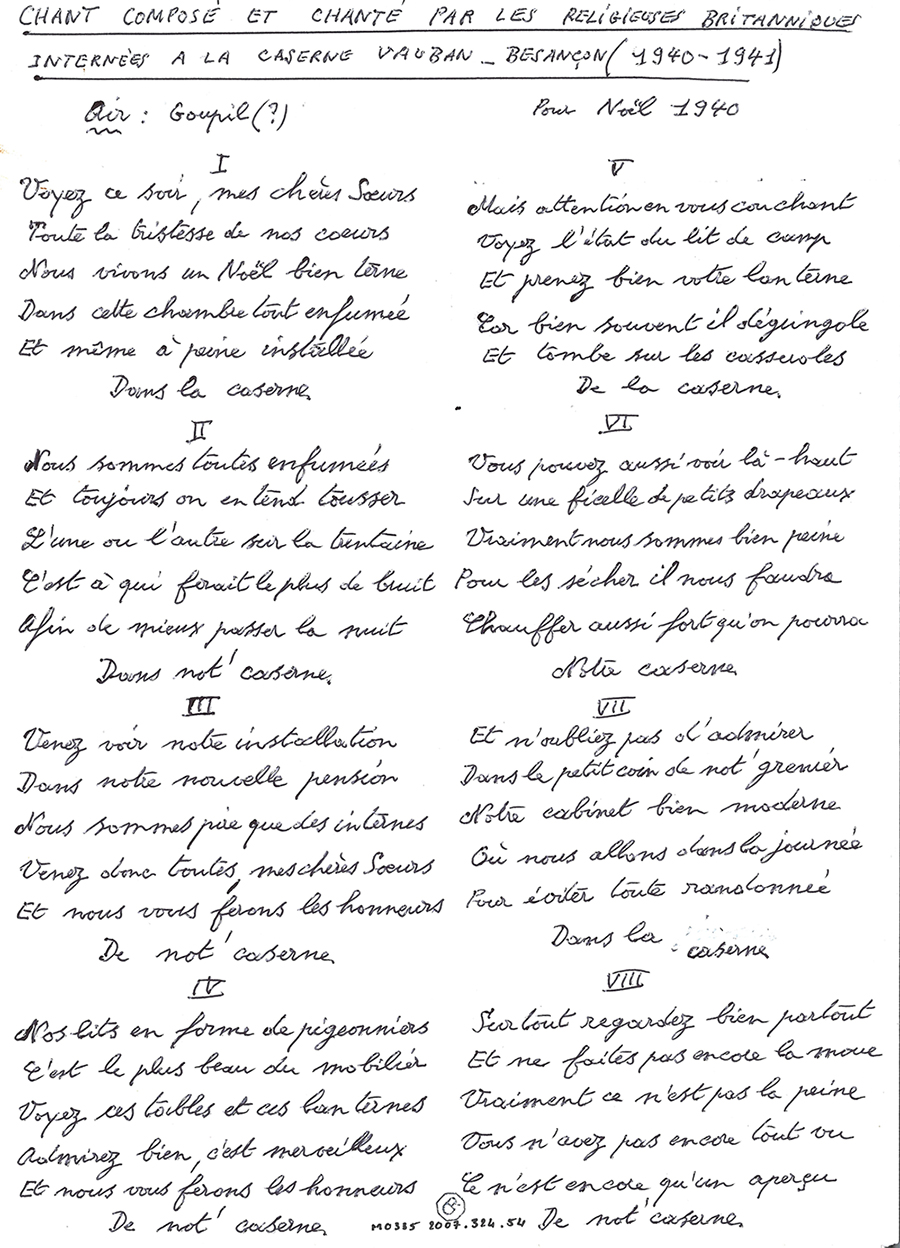 CHANT COMPOSÉ ET CHANTÉ PAR LES RELIGIEUSES BRITANNIQUES
INTERNÉES A LA CASERNE VAUBAN _ BESANÇON (1940-1941)
Air : Goupil (?)
Pour Noël 1940
I
Voyez ce soir, mes chères Sœurs
Toute la tristesse de nos coeurs
Nous vivons un Noël bien terne
Dans cette chambre tout enfumée
Et même à peine installée
Dans la caserne.
II
Nous sommes toutes enfumées
Et toujours on entend tousser
L'une ou l'autre sur la trentaine
C'est à qui ferait le plus de bruit
Afin de mieux passer la nuit
Dans not' caserne.
III
Venez voir notre installation
Dans notre nouvelle pension
Nous sommes pire que des internes
Venez donc toutes, mes chères Sœurs
Et nous vous ferons les honneurs
De not' caserne.
IV
Nos lits en forme de pigeonniers
C'est le plus beau du mobilier
Voyez ces tables et ces lanternes
Admirez bien, c'est merveilleux
Et nous vous ferons les honneurs
De not' caserne.
V
Mais attention en vous couchant
Voyez l'état du lit de camp
Et prenez bien votre lanterne
Car bien souvent il dégringole
Et tombe sur les casseroles
De la caserne.
VI
Vous pouvez aussi voir là-haut
Sur une ficelle de petits drapeaux
Vraiment nous sommes bien peine
Pour les sécher il nous faudra
Chauffer aussi fort qu'on pourra
Notre caserne.
VII
Et n'oubliez pas d'admirer
Dans le petit coin de not' grenier
Notre cabinet bien moderne
Où nous allons dans la journée
Pour éviter toute randonnée
Dans la caserne
VIII
Surtout regardez bien partout
Et ne faites pas encore la moue
Vraiment ce n'est pas la peine
Vous n'avez pas encore tout vu
Ce n'est encore qu'un aperçu
De not' caserne.
M0385 2007.324.54